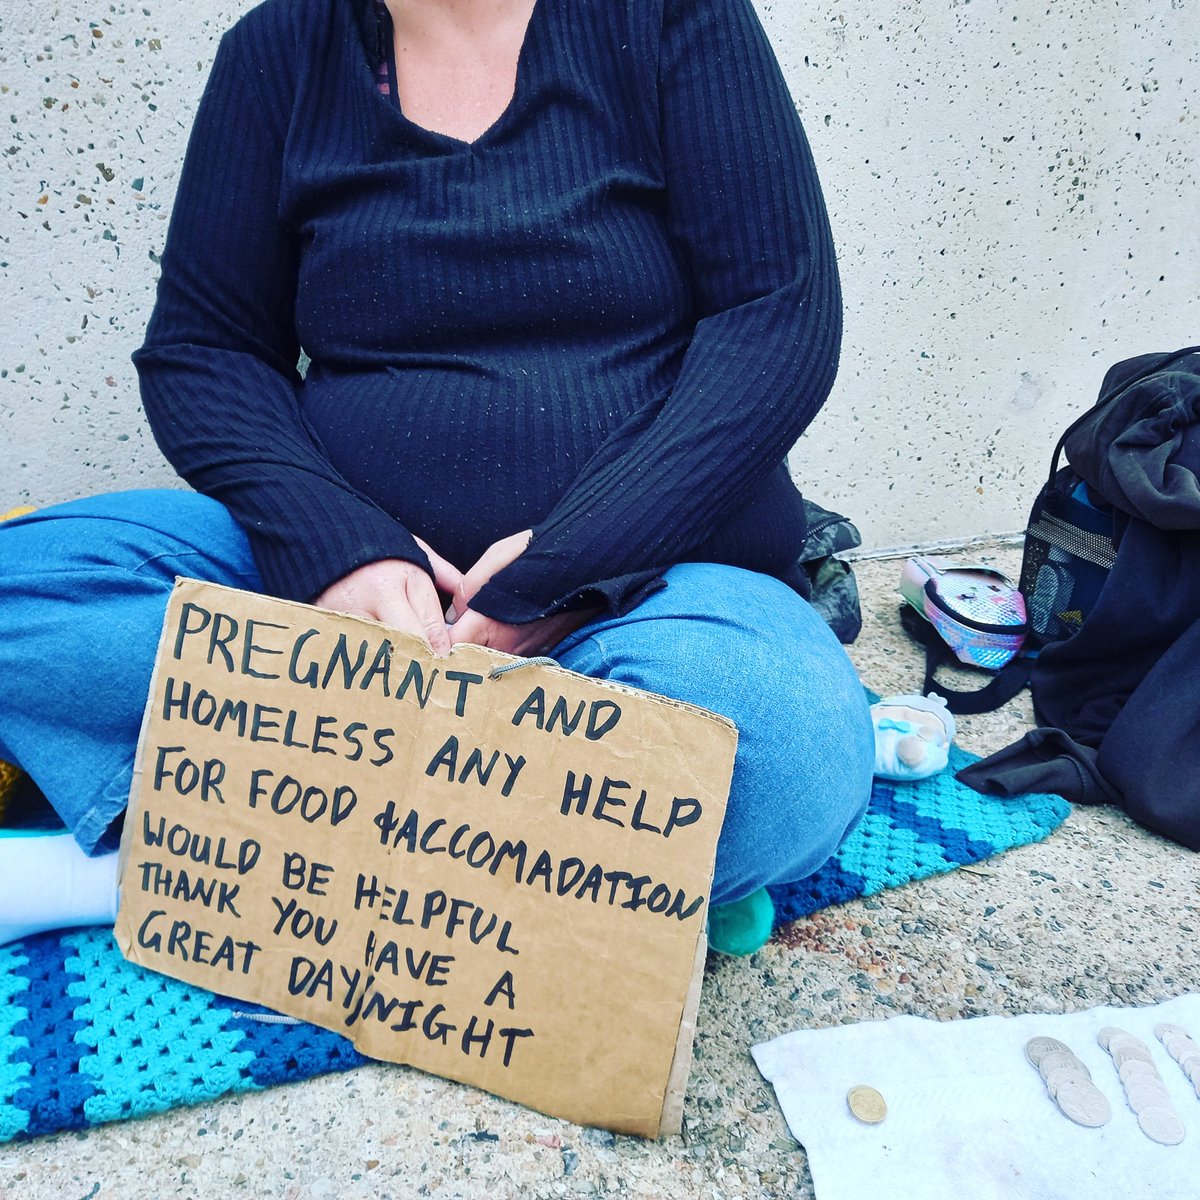 PREGNANT AND
HOMELESS ANY HELP
FOR FOOD & ACCOMADATION
WOULD BE HELPFUL
THANK YOU HAVE A
GREAT DAY/NIGHT